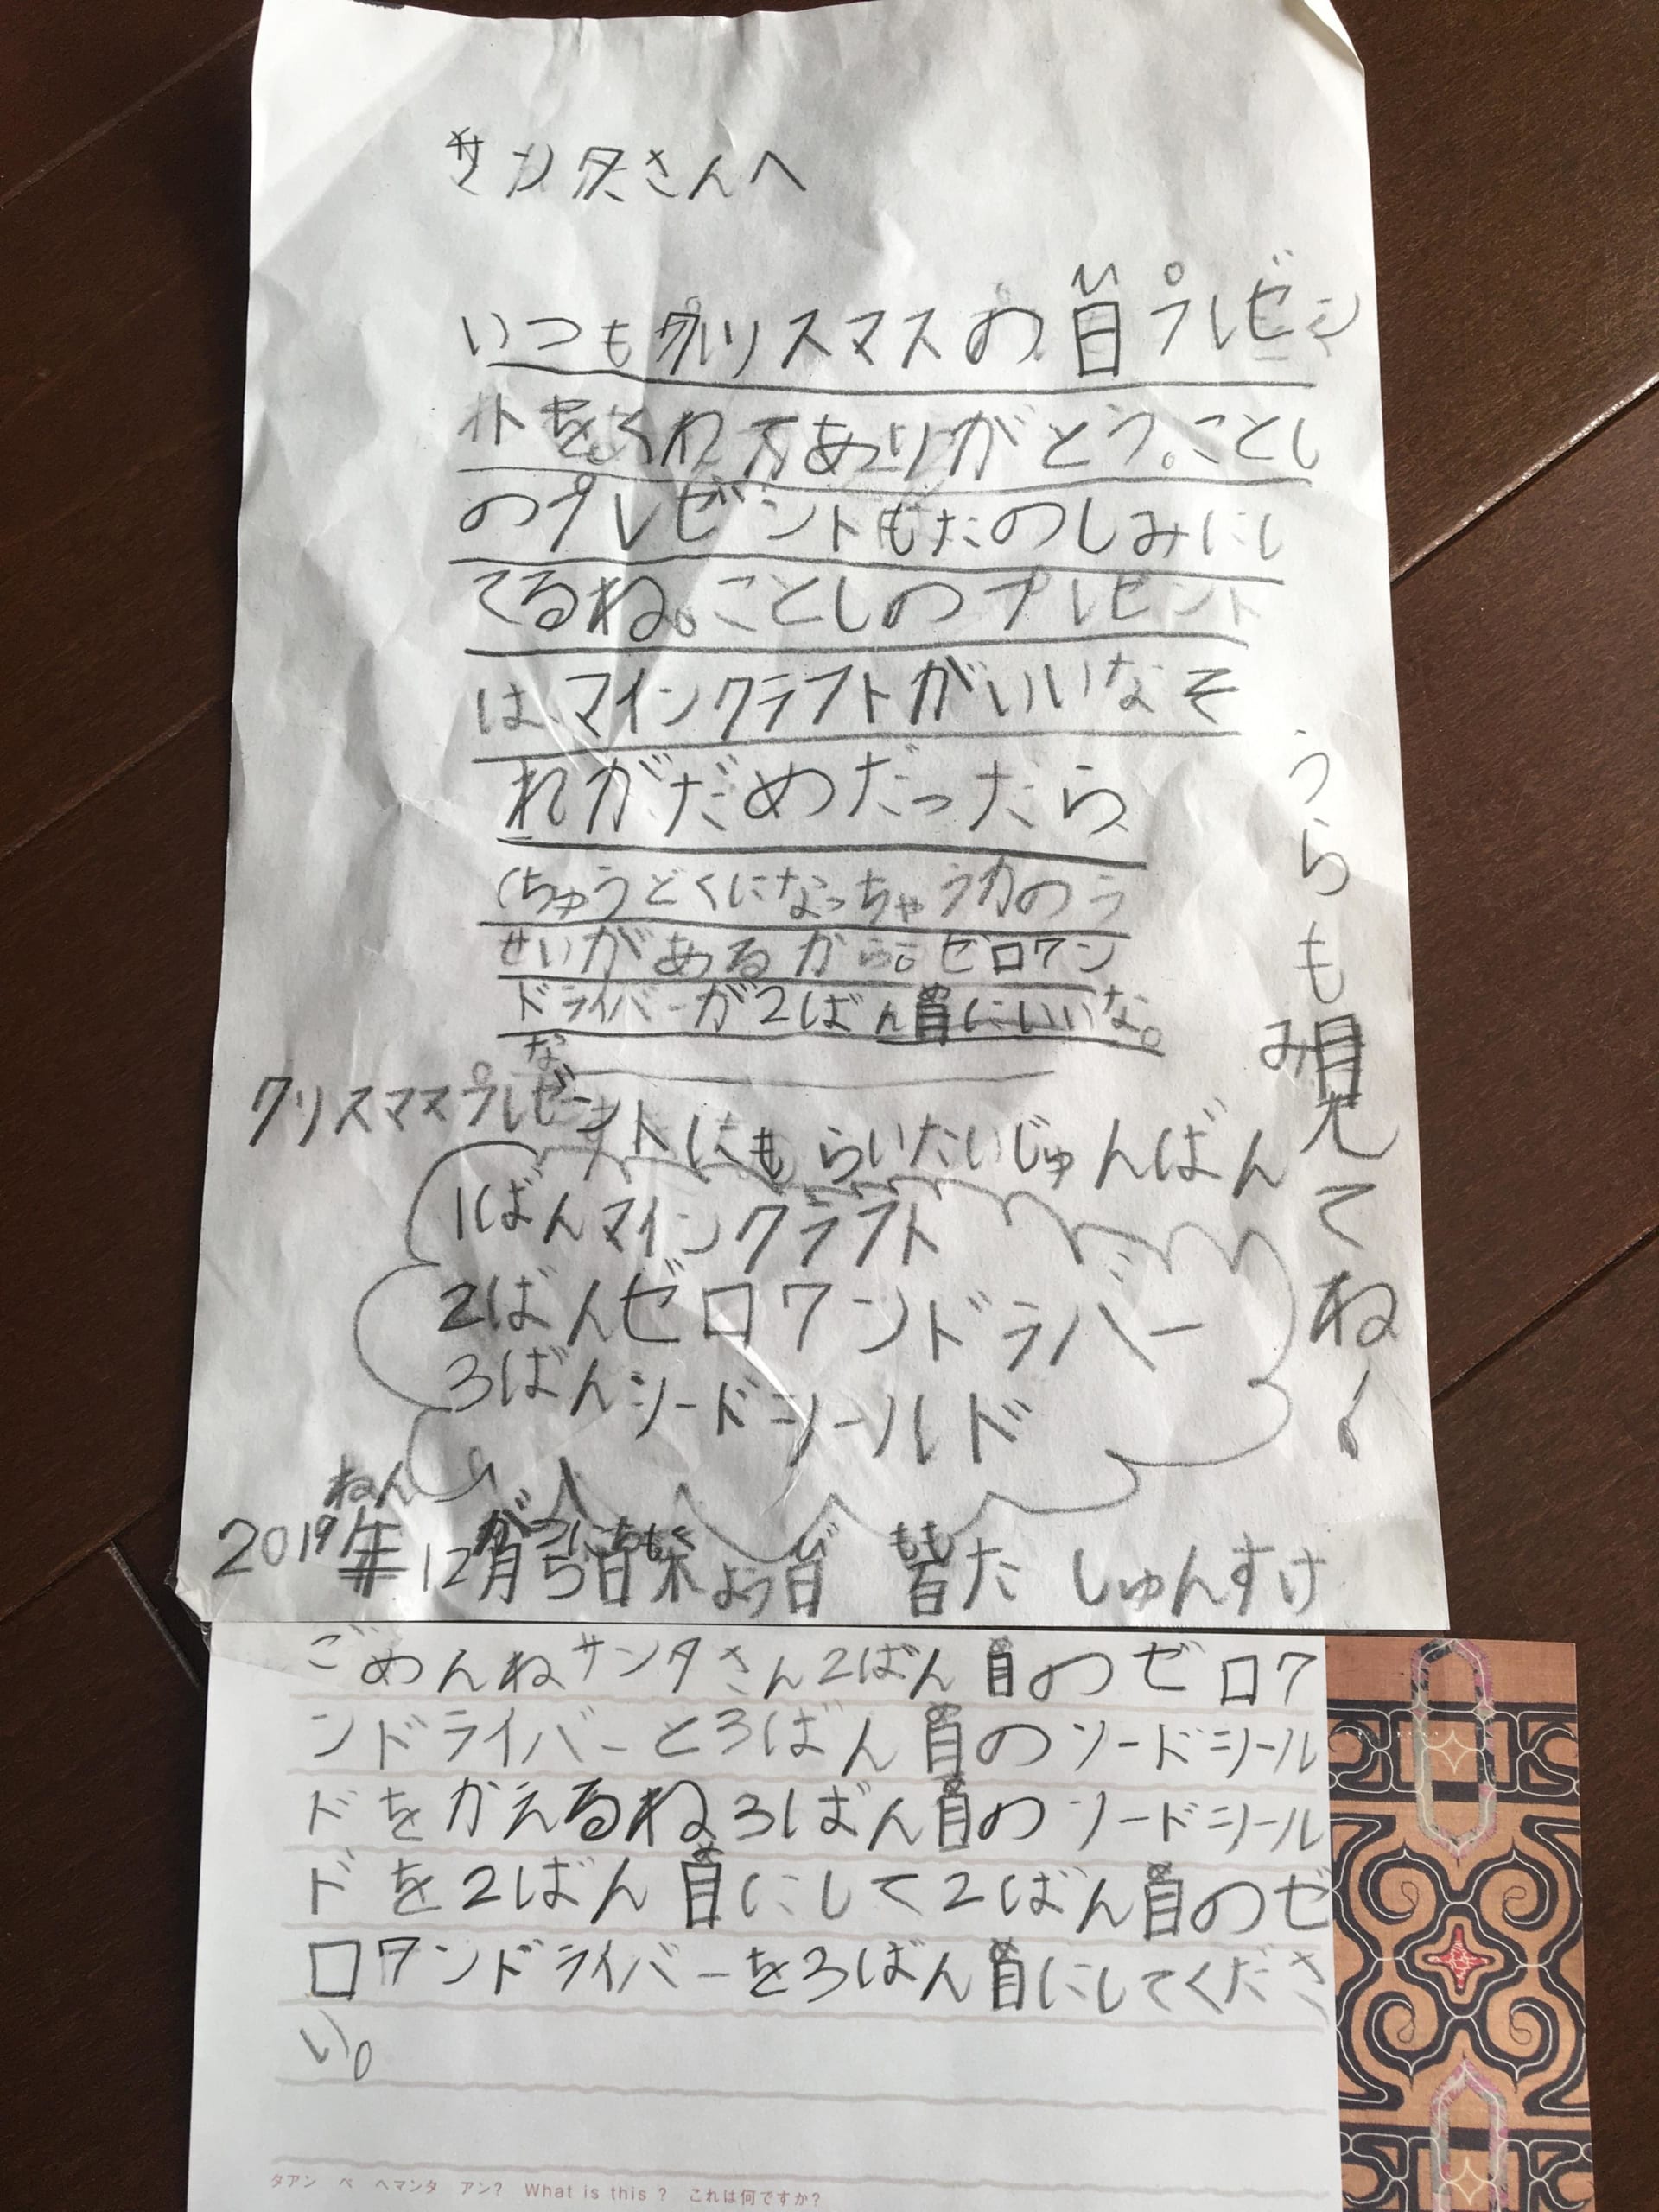 サンタさんへ
いつもクリスマスの日プレゼン
トをくれてありがとう。ことし
のプレゼントもたのしみにし
てるね。ことしのプレゼント
は、マインクラフトがいいなそ
れがだめだったら
(ちゅうどくになっちゃうかのう
せいがあるから。ゼロワン
ドライバーが2ばん目にいいな。
な
クリスマスプレゼントにもらいたいじゅんばん
1ばんマインクラフト
2ばんゼロワンドラバー
3ばんソードシールド
うらも見てね!
み
ねん がつ にち もく び もも
2019年12月5日木よう日 百た しゅんすけ
ごめんねサンタさん2ばん目のゼロワ
ンドライバーと3ばん目のソードシール
ドをかえるね3ばん目のソードシール
ドを2ばん目にして2ばん目のゼ
ロワンドライバーを3ばん目にしてくださ
い。
タアン ペ ヘマンタ アン? What is this ? これは何ですか?